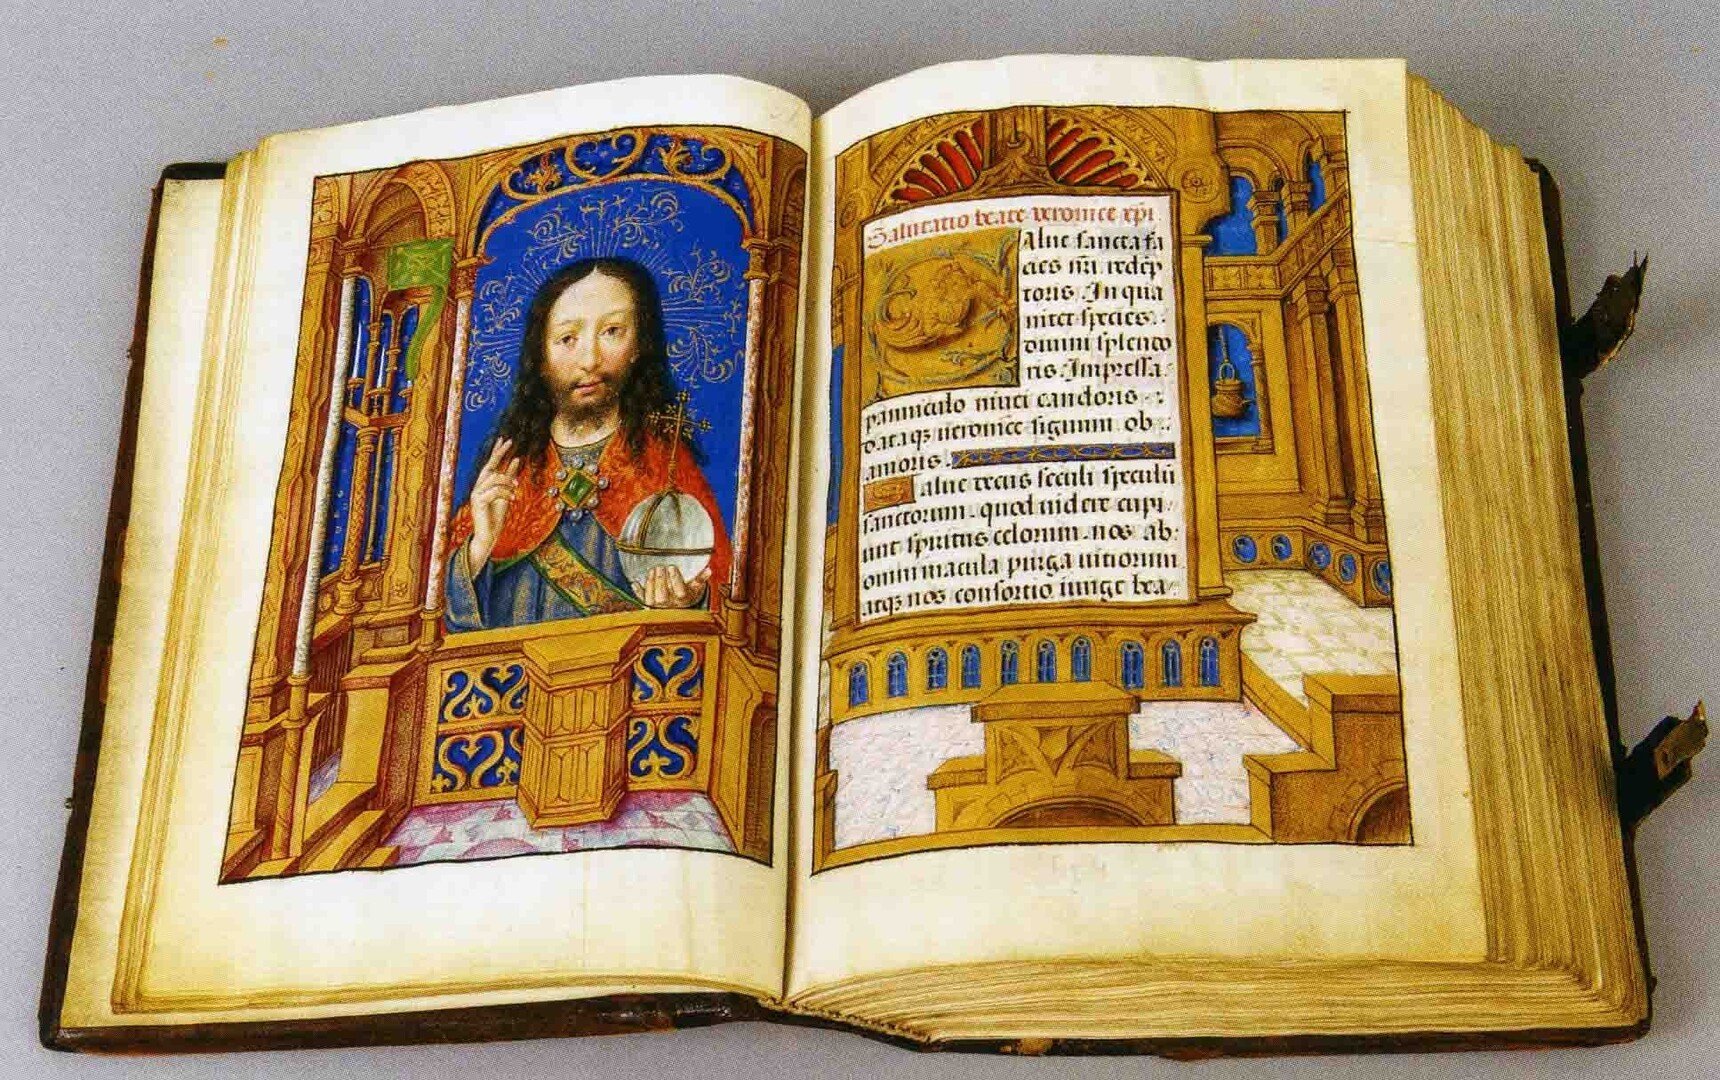 Salutatio beate veronice xp̄i.
Salue sancta fa
cies n̄ri redēp
toris. In qua
nitet species.
diuini splendo
ris. Impressa.
panniculo niuei candoris.
Dataqȝ ueronice signum ob
amoris.
Salue decus seculi speculū
sanctorum. quod uidere cupi
unt spiritus celorum. nos ab
omni macula purga uitiorum
atqȝ nos consortio iunge bea